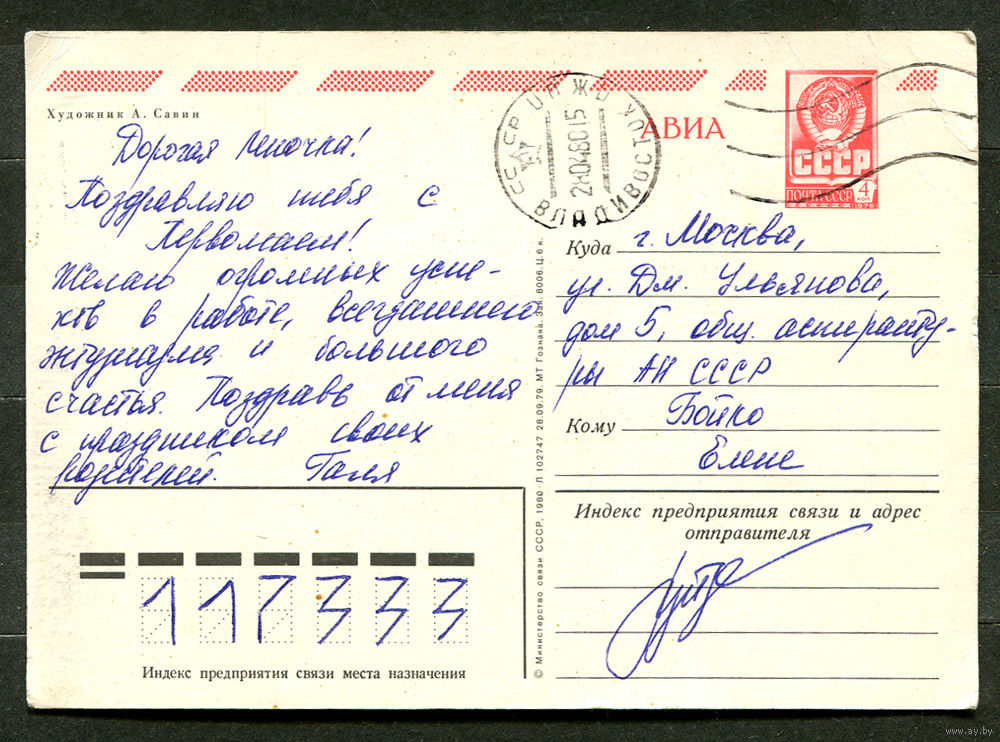 Художник А. Савин
Дорогая Леночка!
Поздравляю тебя с
Первомаем!
Желаю огромных успе-
хов в работе, всегдашнего
энтузиазма и большого
счастья. Поздравь от меня
с праздником своих
родителей. Галя
АВИА
СССР
ПОЧТА СССР
4
КОП
1976
СССР
ВЛАДИВОСТОК
28048015
Куда г. Москва,
ул. Дм. Ульянова,
дом 5, общ. аспиранту-
ры АН СССР
Кому Бойко
Елене
Индекс предприятия связи и адрес
отправителя
117333
Индекс предприятия связи места назначения
© Министерство связи СССР. 1980 Л 102747 28.09.79. МТ Гознака. Зак. 8006. Ц. 6 к.
www.ay.by